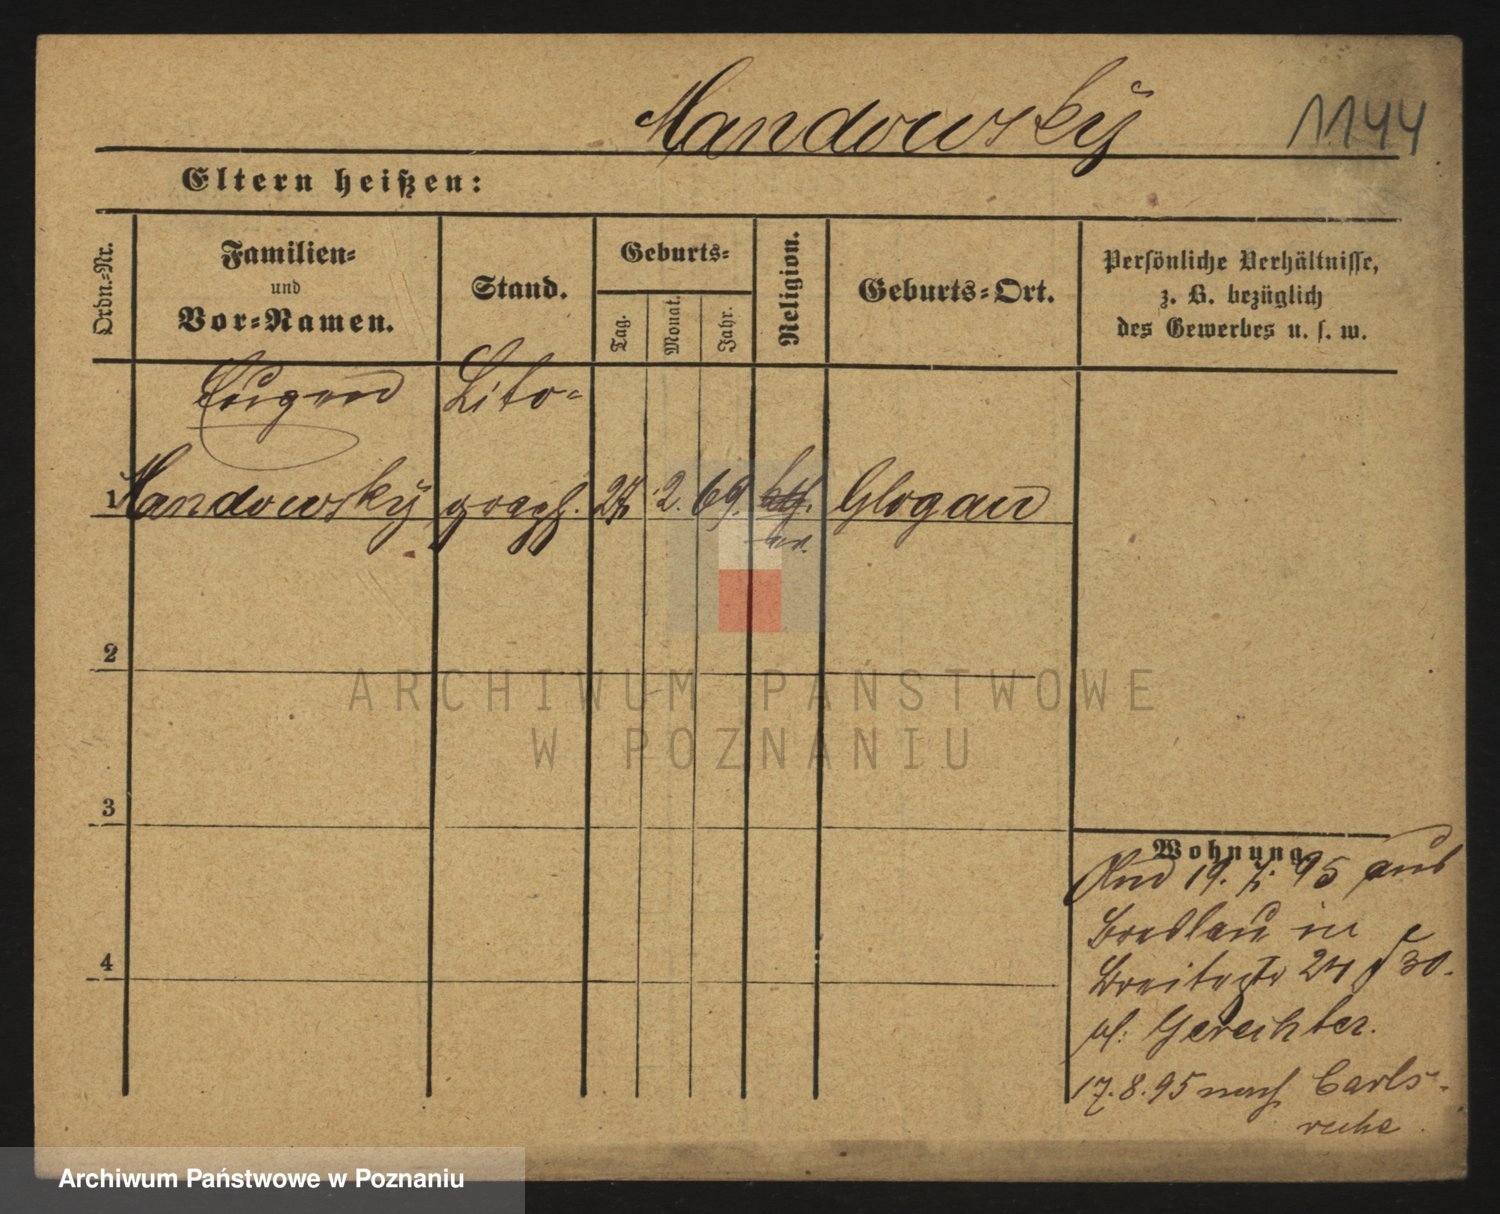 Mandowsky 1144
Eltern heißen:
Ordn.=Nr.
Familien=
und
Vor=Namen.
Stand.
Geburts=
Tag.
Monat.
Jahr.
Religion.
Geburts=Ort.
Persönliche Verhältnisse,
z. B. bezüglich
des Gewerbes u. s. w.
Eugen Lito=
1 Mandowsky graph. 27. 2. 69. Glogau
2
3
4
ARCHIWUM PAŃSTWOWE
W POZNANIU
Wohnung
19. 7. 95 aus
Breslau in
Breitestr 24 30.
Gerechter.
17. 8. 95 nach Carls-
ruhe.
Archiwum Państwowe w Poznaniu